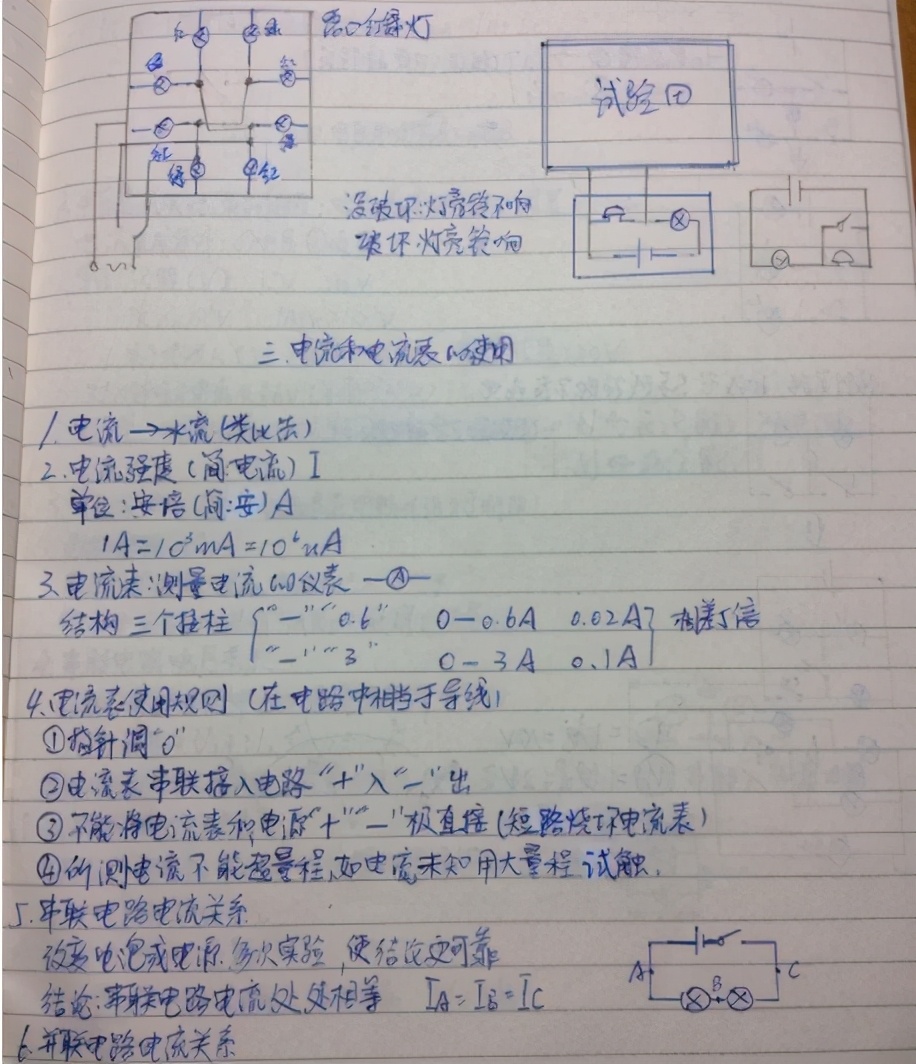 路口红绿灯
红 绿
绿 红
试验田
红 绿
绿 红
没破坏:灯亮铃不响
破坏:灯亮铃响
三.电流和电流表的使用
1.电流→水流(类比法)
2.电流强度(简:电流)I
单位:安培(简:安)A
1A=10³mA=10⁶uA
3.电流表:测量电流的仪表 —Ⓐ—
结构 三个接柱 {"—""0.6" 0—0.6A 0.02A} 相差5倍
"—""3" 0—3A 0.1A
4.电流表使用规则(在电路中相当于导线)
①指针调"0"
②电流表串联接入电路"+"入"—"出
③不能将电流表和电源"+""—"极直接(短路烧坏电流表)
④所测电流不能超量程,如电流未知用大量程试触.
5.串联电路电流关系
改变电泡或电源.多次实验,使结论更可靠
A B C
结论:串联电路电流处处相等 IA=IB=IC
6.并联电路电流关系